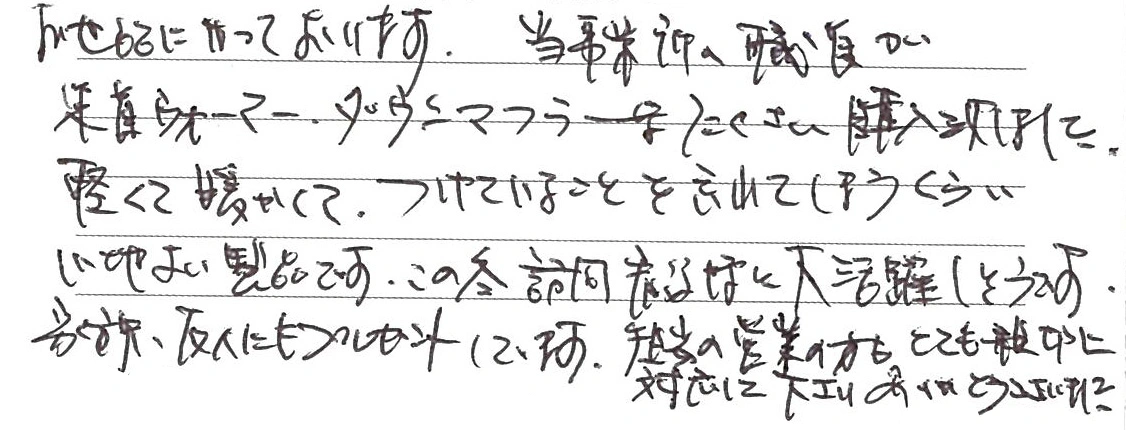 お世話になっております。当事業所の職員が
足首ウォーマー、ダウンマフラーをたくさん購入致しました。
軽くて暖かくて、つけていることを忘れてしまうくらい
心地よい製品です。この冬訪問看護ではに大活躍しそうです。
家族、友人にもプレゼントしています。担当の営業の方もとても親切に
対応して下さりありがとうございました